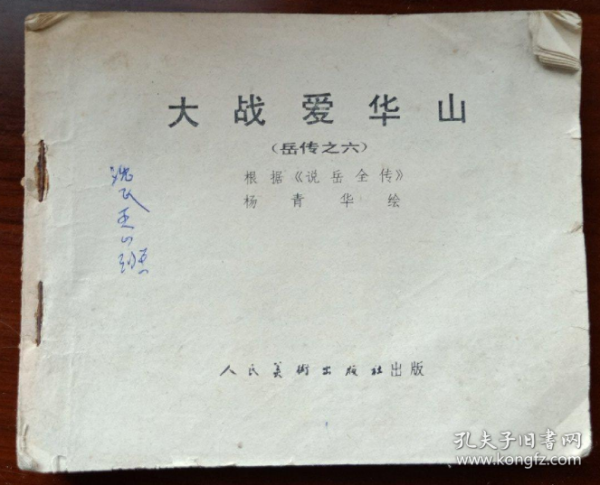 大战爱华山
(岳传之六)
根据《说岳全传》
杨青华绘
人民美術出版社出版
孔夫子旧书网
www.kongfz.com